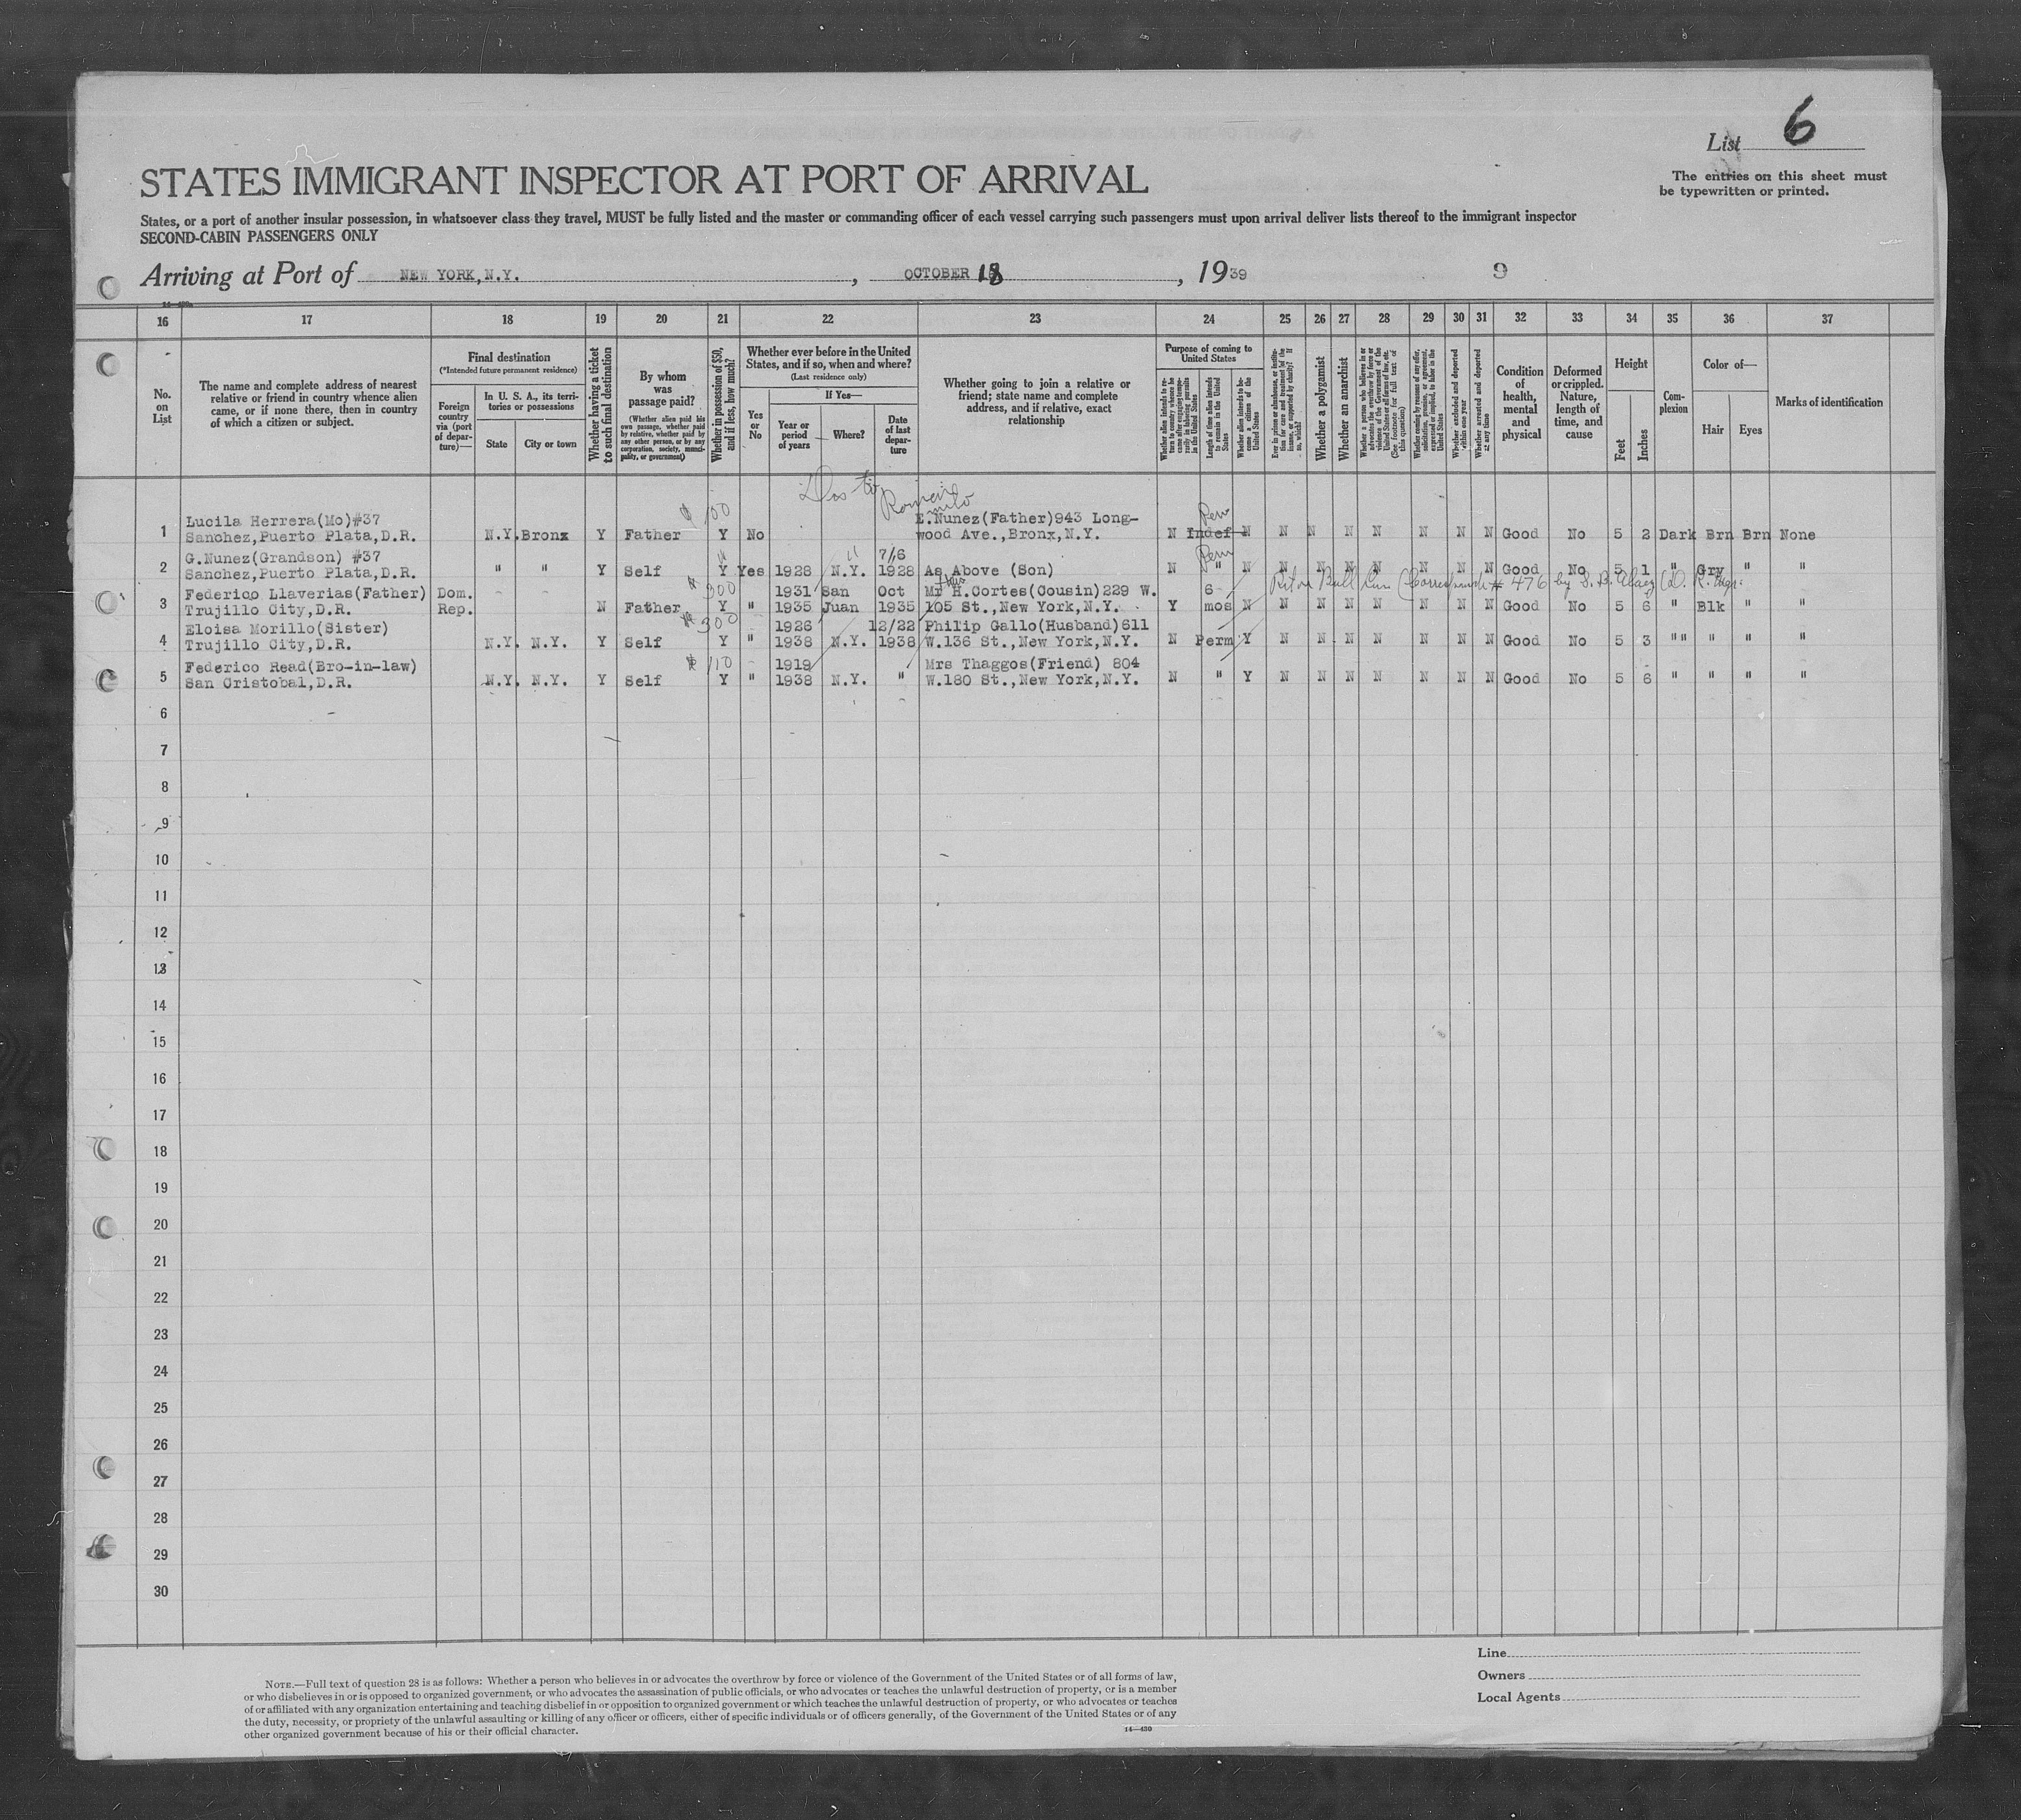 List 6
The entries on this sheet must
be typewritten or printed.
STATES IMMIGRANT INSPECTOR AT PORT OF ARRIVAL
States, or a port of another insular possession, in whatsoever class they travel, MUST be fully listed and the master or commanding officer of each vessel carrying such passengers must upon arrival deliver lists thereof to the immigrant inspector
SECOND-CABIN PASSENGERS ONLY
Arriving at Port of NEW YORK, N.Y. , OCTOBER 18 , 1939 9
16 17 18 19 20 21 22 23 24 25 26 27 28 29 30 31 32 33 34 35 36 37
No. on List
The name and complete address of nearest relative or friend in country whence alien came, or if none there, then in country of which a citizen or subject.
Final destination
(*Intended future permanent residence)
Foreign country via (port of departure)—
In U. S. A., its territories or possessions
State
City or town
Whether having a ticket to such final destination
By whom was passage paid?
(Whether alien paid his own passage, whether paid by relative, whether paid by any other person, or by any corporation, society, municipality, or government)
Whether in possession of $50, and if less, how much?
Whether ever before in the United States, and if so, when and where?
(Last residence only)
Yes or No
If Yes—
Year or period of years
Where?
Date of last departure
Whether going to join a relative or friend; state name and complete address, and if relative, exact relationship
Purpose of coming to United States
Length of time alien intends to remain in the United States
Whether alien intends to become a citizen of the United States
Whether a polygamist
Whether an anarchist
Whether excluded and deported within one year
Whether arrested and deported at any time
Condition of health, mental and physical
Deformed or crippled. Nature, length of time, and cause
Height
Feet
Inches
Complexion
Color of—
Hair
Eyes
Marks of identification
$ 100 Perm
Lucila Herrera(Mo)#37 E.Nunez(Father)943 Long-
1 Sanchez,Puerto Plata,D.R. N.Y. Bronx Y Father Y No wood Ave.,Bronx,N.Y. N Indef N N N N N N N N Good No 5 2 Dark Brn Brn None
G.Nunez(Grandson) #37 " " 7/6 Perm
2 Sanchez,Puerto Plata,D.R. " " Y Self Y Yes 1928 N.Y. 1928 As Above (Son) N " N N N N N N N N Good No 5 1 " Gry " "
Federico Llaverias(Father) Dom. $ 300 1931 San Oct Mr H.Cortes(Cousin)229 W. 6
3 Trujillo City,D.R. Rep. N Father Y " 1935 Juan 1935 105 St.,New York,N.Y. Y mos N N N N N N N N Good No 5 6 " Blk " "
Eloisa Morillo(Sister) $ 300 1926 12/22 Philip Gallo(Husband)611
4 Trujillo City,D.R. N.Y. N.Y. Y Self Y " 1938 N.Y. 1938 W.136 St.,New York,N.Y. N Perm Y N N N N N N N Good No 5 3 "" " " "
Federico Read(Bro-in-law) $ 110 1919 Mrs Thaggos(Friend) 804
5 San Cristobal,D.R. N.Y. N.Y. Y Self Y " 1938 N.Y. " W.180 St.,New York,N.Y. N " Y N N N N N N N Good No 5 6 " " " "
6
7
8
9
10
11
12
13
14
15
16
17
18
19
20
21
22
23
24
25
26
27
28
29
30
Line
Owners
Local Agents
NOTE.—Full text of question 28 is as follows: Whether a person who believes in or advocates the overthrow by force or violence of the Government of the United States or of all forms of law,
or who disbelieves in or is opposed to organized government, or who advocates the assassination of public officials, or who advocates or teaches the unlawful destruction of property, or is a member
of or affiliated with any organization entertaining and teaching disbelief in or opposition to organized government or which teaches the unlawful destruction of property, or who advocates or teaches
the duty, necessity, or propriety of the unlawful assaulting or killing of any officer or officers, either of specific individuals or of officers generally, of the Government of the United States or of any
other organized government because of his or their official character.
14—430